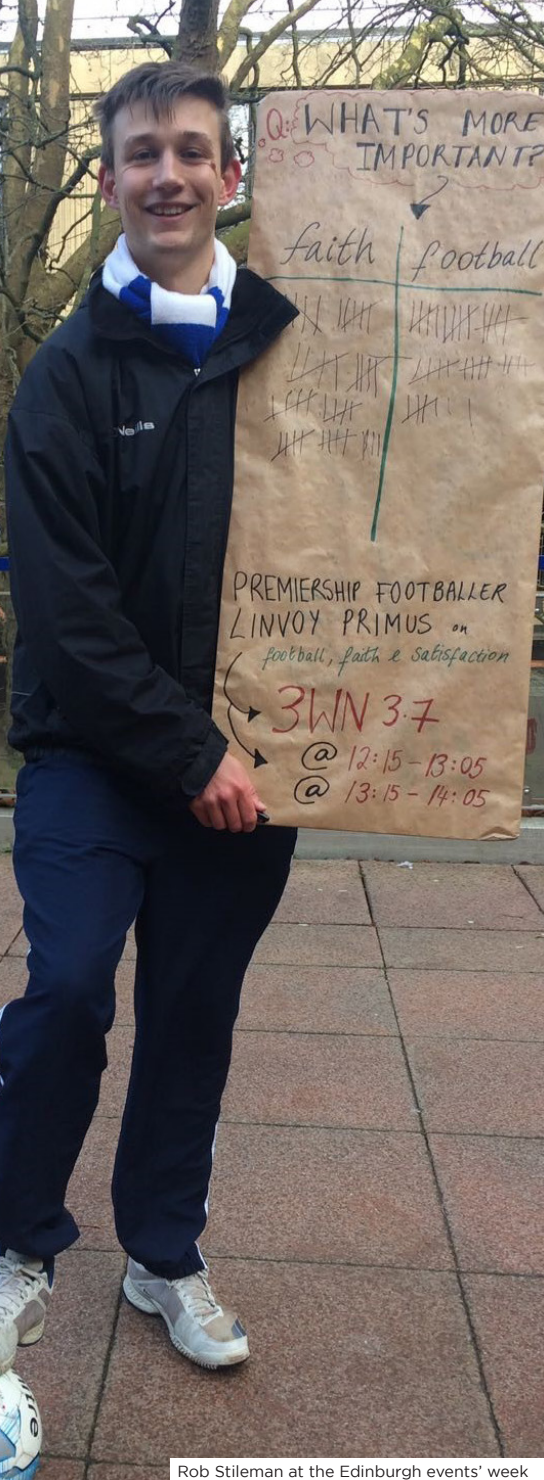 Q: WHAT'S MORE
IMPORTANT?
faith football
PREMIERSHIP FOOTBALLER
LINVOY PRIMUS on
football, faith & satisfaction
3WN 3.7
@ 12:15 - 13:05
@ 13:15 - 14:05
Rob Stileman at the Edinburgh events' week